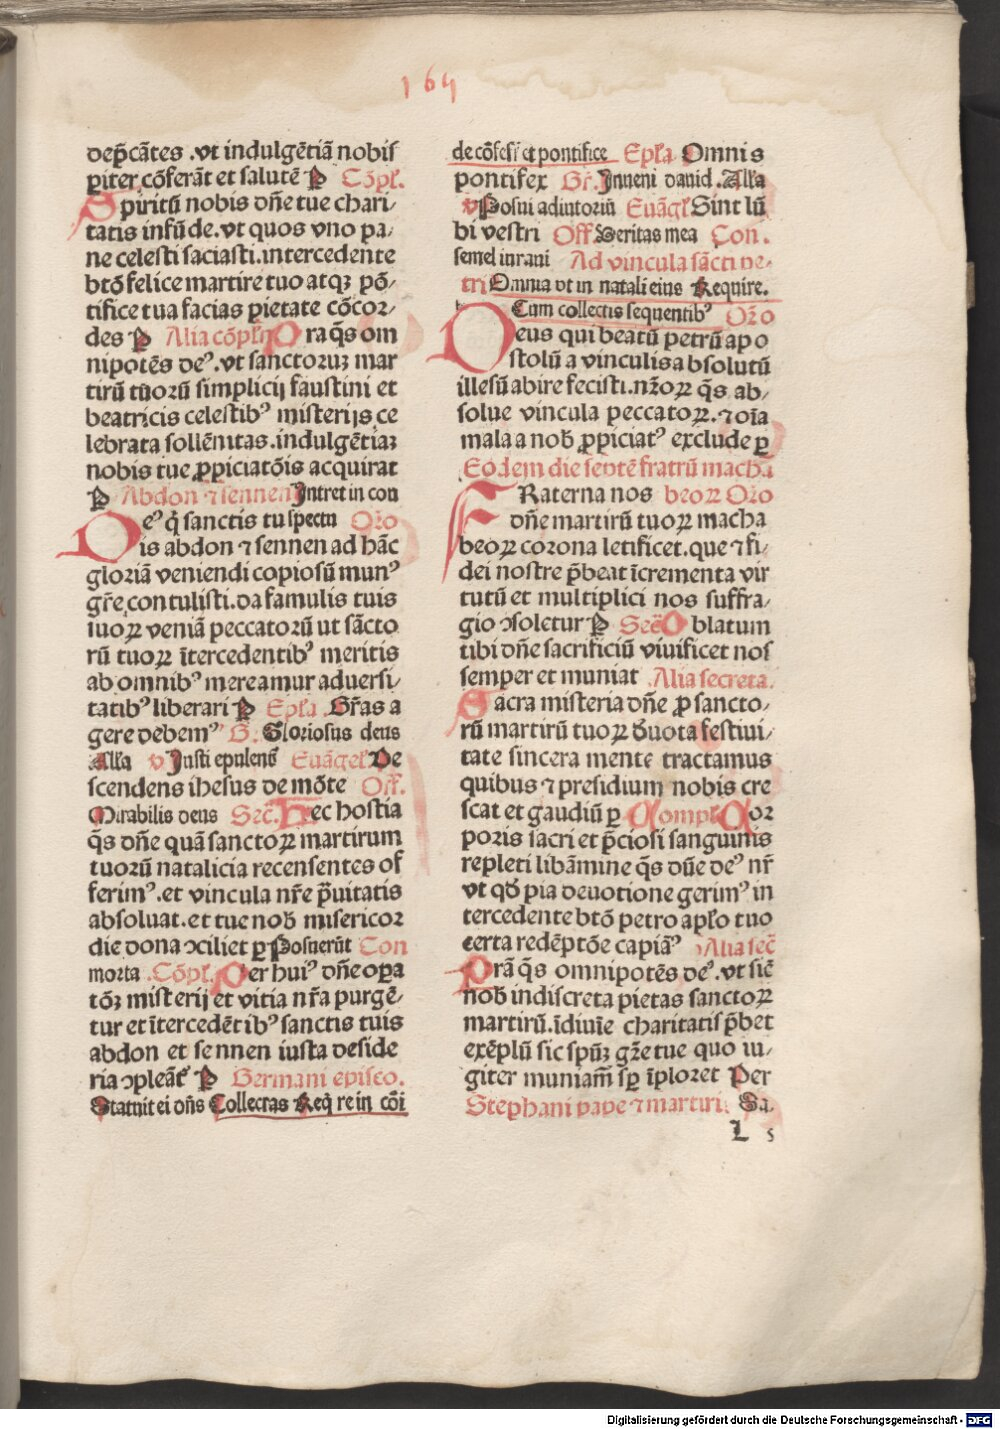 164
dep̄cātes .vt indulgētiā nobis
ꝑiter cōferāt et salutē P Cōpl̄.
Spiritū nobis dn̄e tue chari/
tatis infūde. vt quos vno pa/
ne celesti saciasti.intercedente
btō felice martire tuo atqꝫ pō/
tifice tua facias pietate cōcor/
des P Alia cōpl̄ꝰ Ora q̄s om
nipotēs deꝰ. vt sanctoruꝫ mar
tirū tuorū simplicij faustini et
beatricis celestibꝰ misterijs ce
lebrata sollēnitas.indulgētiaꝫ
nobis tue ꝓpiciatōis acquirat
P Abdon ⁊ sennen Intret in con
Deꝰ q̄ sanctis tu spectu Or̄o
is abdon ⁊ sennen ad hāc
gloriā veniendi copiosū munꝰ
gr̄e contulisti.da famulis tuis
tuoꝝ veniā peccatorū ut sācto
rū tuoꝝ ītercedentibꝰ meritis
ab omnibꝰ mereamur aduersi/
tatibꝰ liberari P Ep̄la Gr̄as a
gere debemꝰ G. Gloriosus deus
All̄a v Justi epulent̄ Euāgel̄. De
scendens ihesus de mōte Off.
Mirabilis deus Sec̄. Hec hostia
q̄s dn̄e quā sanctoꝝ martirum
tuorū natalicia recensentes of
ferimꝰ.et vincula nr̄e p̄uitatis
absoluat.et tue nob̄ misericor
die dona ↄciliet ꝑ Posuerūt Con
morta .Cōpl̄. Per huiꝰ dn̄e oꝑa
tōꝫ misterij et vitia nr̄a purgē/
tur et ītercedētibꝰ sanctis tuis
abdon et sennen iusta deside
ria ↄpleāt᷑ P Germani episco.
Statuit ei dn̄s Collectas Req̄re in cōi
de cōfess̄ et pontifice Ep̄la Omnis
pontifex Gr̄. Inueni dauid .All̄a
v Posui adiutoriū Euāgl̄ Sint lū
bi vestri Off. Veritas mea Con.
semel iuraui Ad vincula sācti pe/
tri Omnia vt in natali eius Require.
Cum collectis sequentibꝰ Or̄o
Deus qui beatū petrū apo
stolū a vinculis absolutū
illesū abire fecisti.nr̄oꝝ q̄s ab/
solue vincula peccatoꝝ.⁊ oīa
mala a nob̄ ꝓpiciatꝰ exclude ꝑ
Eodem die septē fratrū macha
Fraterna nos beoꝝ Or̄o
dn̄e martirū tuoꝝ macha
beoꝝ corona letificet.que ⁊ fi/
dei nostre p̄beat īcrementa vir
tutū et multiplici nos suffra/
gio ↄsoletur P Sec̄ Oblatum
tibi dn̄e sacrificiū viuificet nos
semper et muniat .Alia secreta.
Sacra misteria dn̄e ꝓ sancto/
rū martirū tuoꝝ d̄uota festiui/
tate sincera mente tractamus
quibus ⁊ presidium nobis cre
scat et gaudiū ꝑ Compl̄ Cor
poris sacri et p̄ciosi sanguinis
repleti libāmine q̄s dn̄e deꝰ nr̄
vt qd̄ pia deuotione gerimꝰ in
tercedente btō petro apl̄o tuo
certa redēptōe capiāꝰ Alia sec̄
Prā q̄s omnipotēs deꝰ.vt sic̄
nob̄ indiscreta pietas sanctoꝝ
martirū.īdiuīe charitatis p̄bet
exēplū sic sp̄uꝫ gr̄e tue quo iu/
giter muniam̄ sꝑ īploret Per
Stephani pape ⁊ martiri. Sa.
L 5
Digitalisierung gefördert durch die Deutsche Forschungsgemeinschaft - DFG